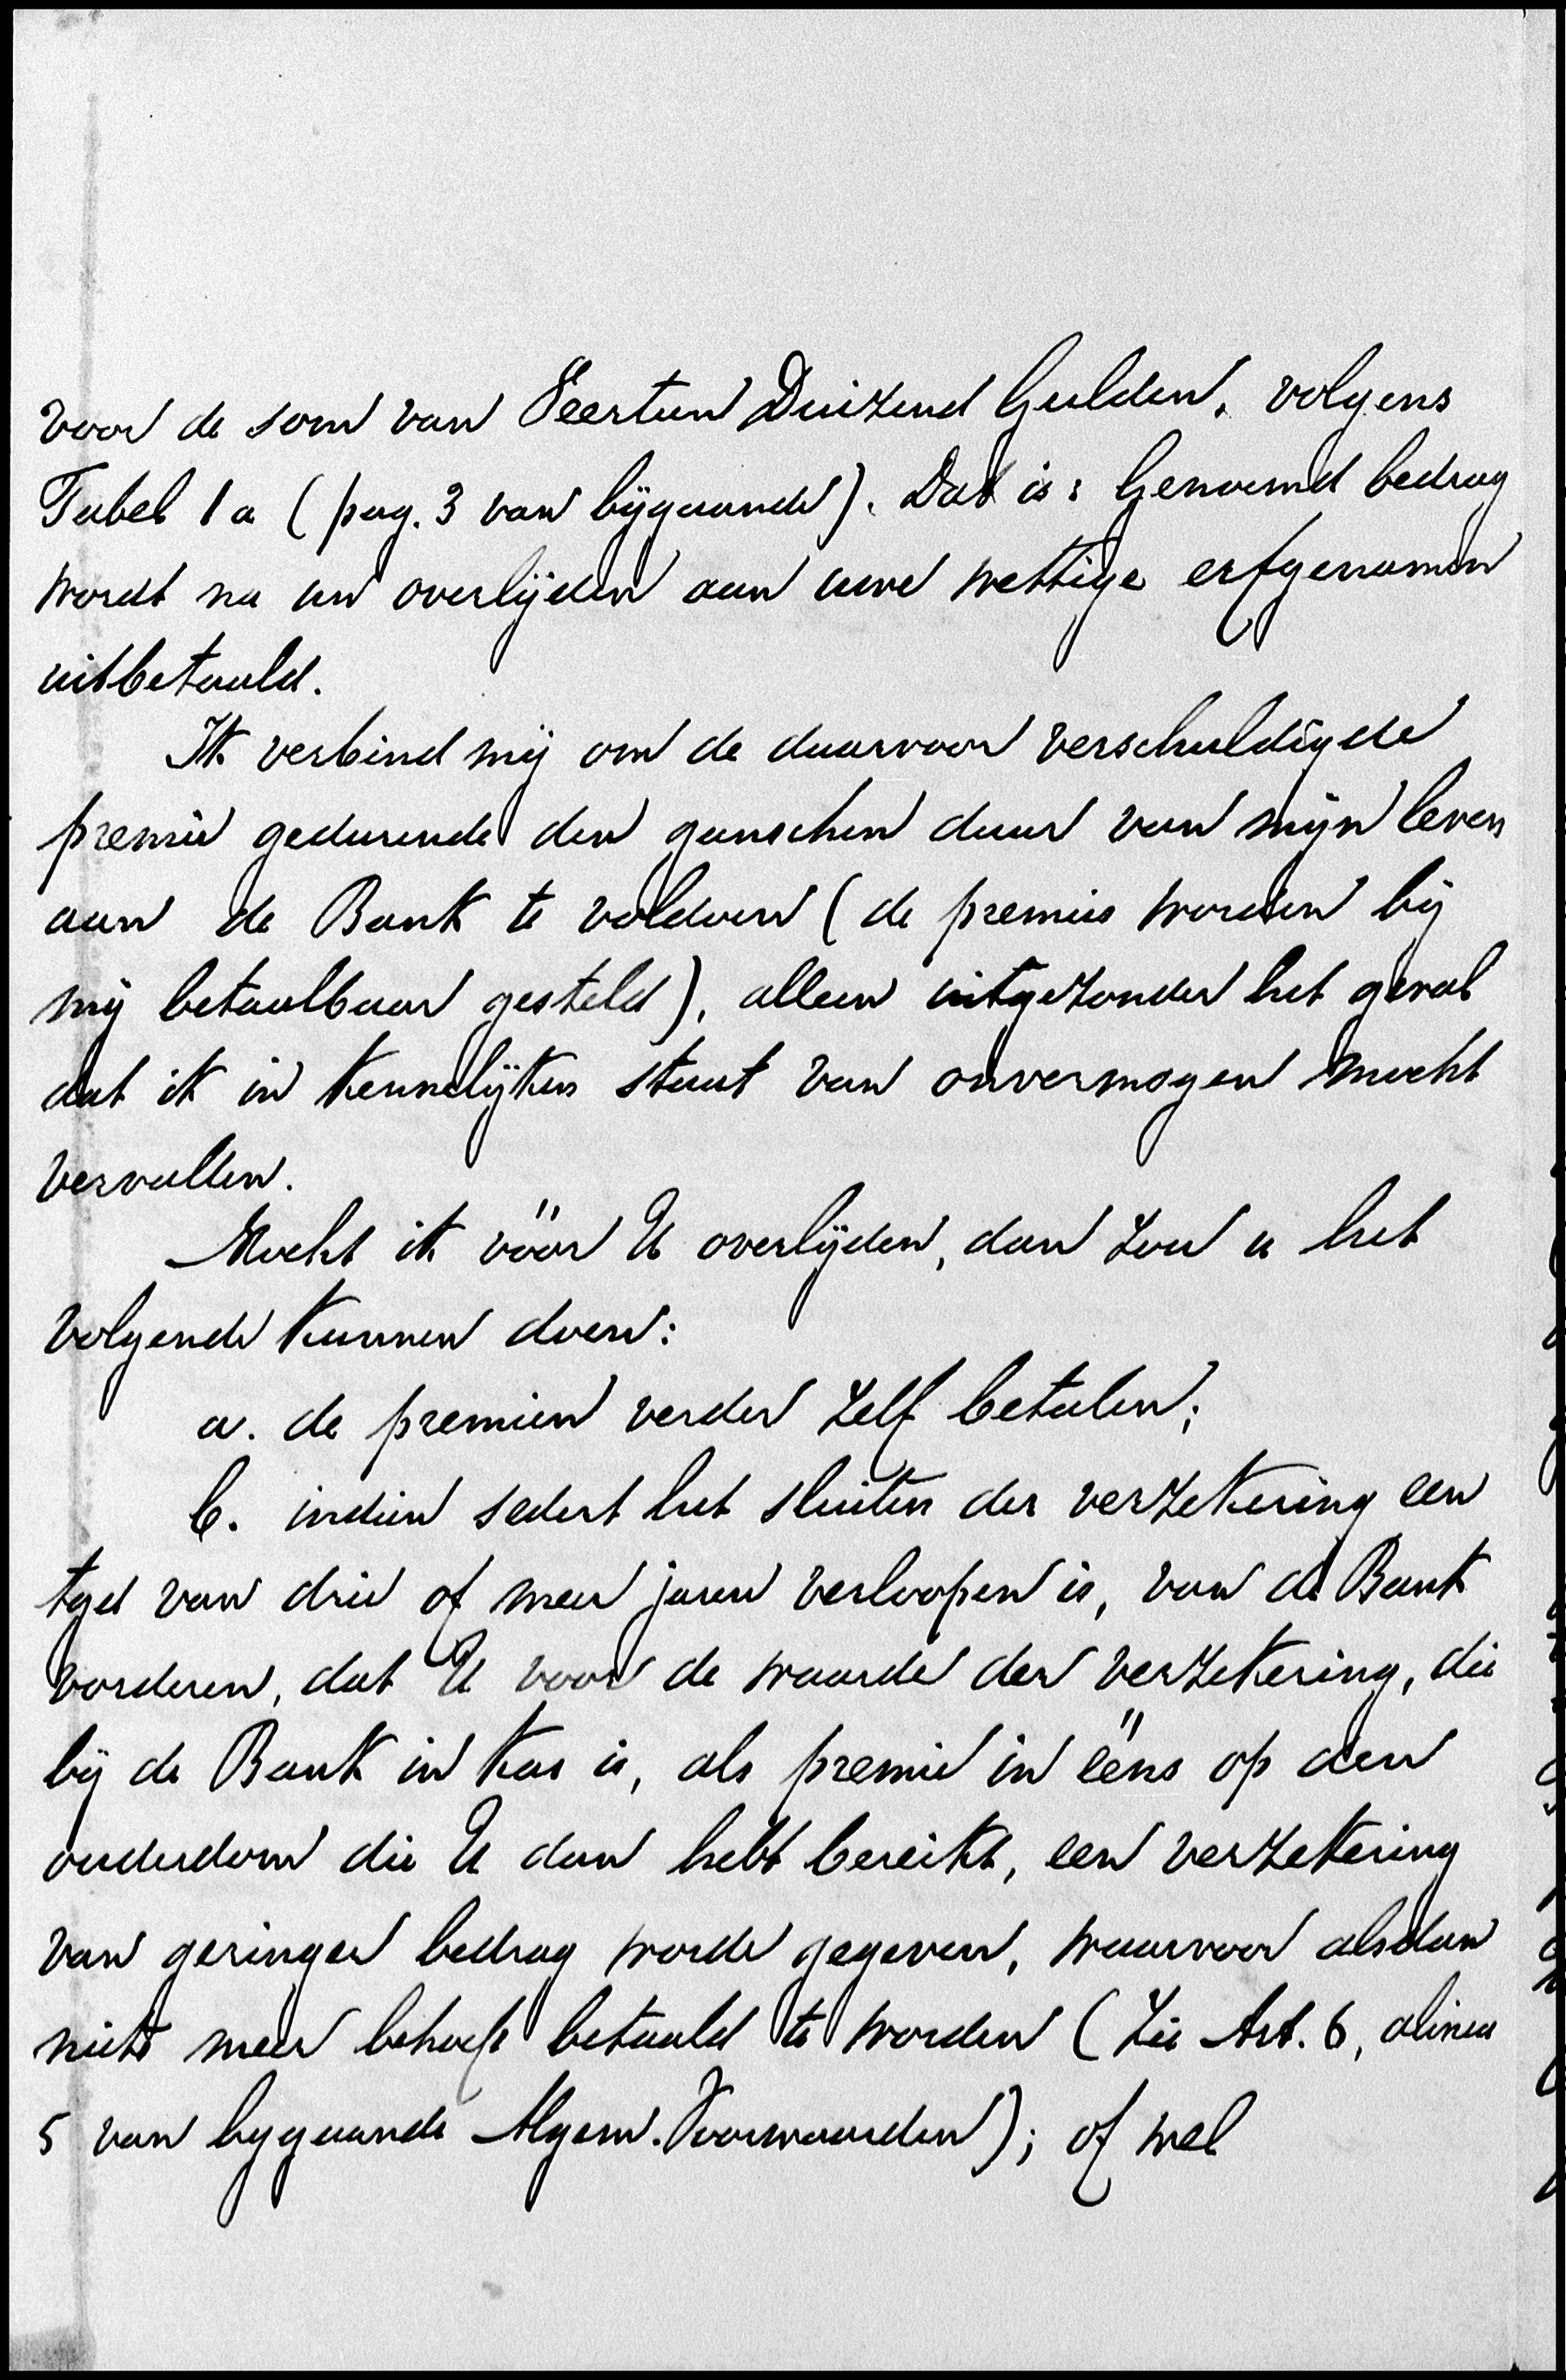 voor de som van Veertien Duizend Gulden, volgens
Tabel 1a (pag. 3 van bijgaande). Dat is: Genoemd bedrag
wordt na uw overlijden aan uwe wettige erfgenamen
uitbetaald.
Ik verbind mij om de daarvoor verschuldigde
premie gedurende den ganschen duur van mijn leven
aan de Bank te voldoen (de premies worden bij
mij betaalbaar gesteld), alleen uitgezonder het geval
dat ik in kennelijken staat van onvermogen mocht
vervallen.
Mocht ik vóór U overlijden, dan zou u het
volgende kunnen doen:
a. de premien verder zelf betalen;
b. indien sedert het sluiten der verzekering een
tijd van drie of meer jaren verloopen is, van de Bank
vorderen, dat U voor de waarde der verzekering, die
bij de Bank in kas is, als premie in ééns op den
ouderdom die U dan hebt bereikt, een verzekering
van geringer bedrag worde gegeven, waarvoor alsdan
niets meer behoeft betaald te worden (Zie Art. 6, alinea
5 van bygaande Algem. Voorwaarden); of wel